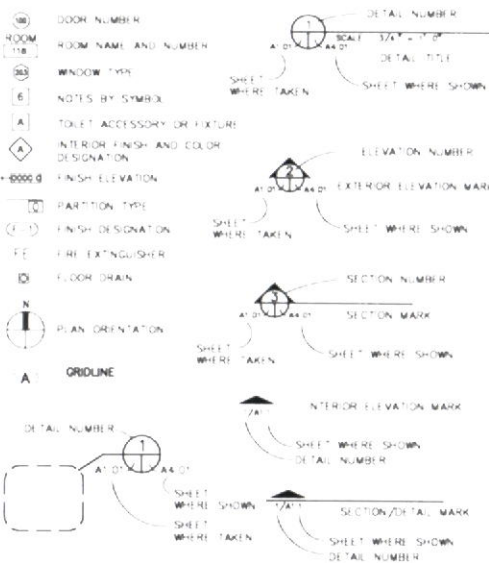 100 DOOR NUMBER
ROOM
118 ROOM NAME AND NUMBER
WINDOW TYPE
6 NOTES BY SYMBOL
A TOILET ACCESSORY OR FIXTURE
A INTERIOR FINISH AND COLOR
DESIGNATION
FINISH ELEVATION
PARTITION TYPE
FINISH DESIGNATION
FE FIRE EXTINGUISHER
FLOOR DRAIN
N
PLAN ORIENTATION
A GRIDLINE
DETAIL NUMBER
1
A1.01 A4.01
SHEET
WHERE SHOWN
SHEET
WHERE TAKEN
DETAIL NUMBER
1
A1.01 A4.01
SCALE 3/4" = 1'-0"
DETAIL TITLE
SHEET
WHERE TAKEN
SHEET WHERE SHOWN
ELEVATION NUMBER
2
A1.01 A4.01
EXTERIOR ELEVATION MARK
SHEET
WHERE TAKEN
SHEET WHERE SHOWN
SECTION NUMBER
3
A1.01 A4.01
SECTION MARK
SHEET
WHERE TAKEN
SHEET WHERE SHOWN
INTERIOR ELEVATION MARK
SHEET WHERE SHOWN
DETAIL NUMBER
SECTION/DETAIL MARK
SHEET WHERE SHOWN
DETAIL NUMBER